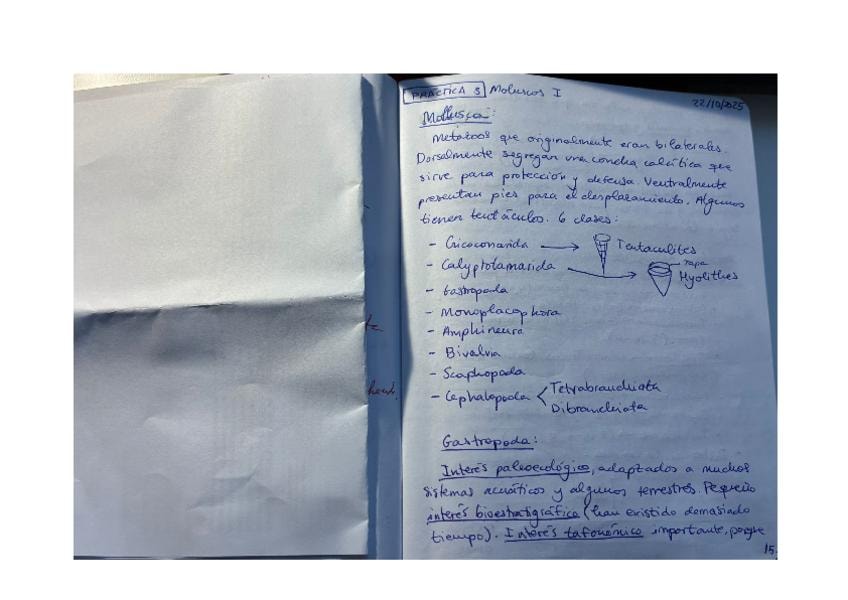 PRÁCTICA 3 Moluscos I
22/10/2025
Mollusca:
Metazoos que originalmente eran bilaterales.
Dorsalmente segregan una concha calcítica que
sirve para protección y defensa. Ventralmente
presentan pies para el desplazamiento. Algunos
tienen tentáculos. 6 clases:
- Cricoconarida → Tentaculites
- Calyptotamarida → Hyolithes
tapa
- Gastropoda
- Monoplacophora
- Amphineura
- Bivalvia
- Scaphopoda
- Cephalopoda < Tetrabranchiata
Dibranchiata
Gastropoda:
Interés paleoecológico, adaptados a muchos
sistemas acuáticos y algunos terrestres. Pequeño
interés bioestratigráfico (han existido demasiado
tiempo). Interés tafonómico importante, porque
15